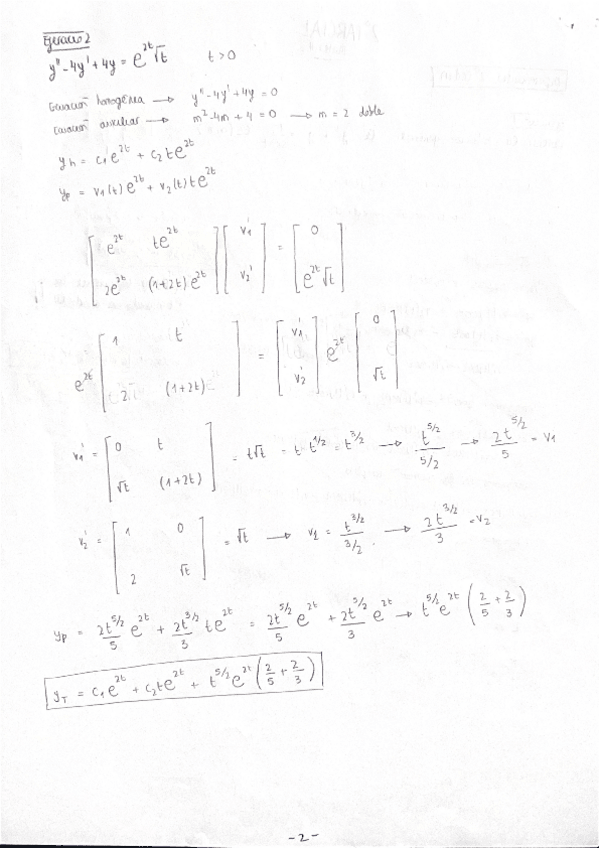 Ejercicio 2
y'' - 4y' + 4y = e^{2t}√t    t > 0
Ecuación homogénea → y'' - 4y' + 4y = 0
Ecuación auxiliar → m² - 4m + 4 = 0 → m = 2 doble
y_h = c_1 e^{2t} + c_2 t e^{2t}
y_p = v_1(t) e^{2t} + v_2(t) t e^{2t}
[ e^{2t}  t e^{2t} ; 2e^{2t}  (1+2t) e^{2t} ] [ v_1' ; v_2' ] = [ 0 ; e^{2t}√t ]
e^{2t} [ 1  t ; 2  (1+2t) ] = [ v_1' ; v_2' ] e^{2t} [ 0 ; √t ]
v_1' = [ 0  t ; √t  (1+2t) ] = t√t = t · t^{1/2} = t^{3/2} → t^{5/2} / 5/2 → 2t^{5/2} / 5 = v_1
v_2' = [ 1  0 ; 2  √t ] = √t → v_2 = t^{3/2} / 3/2 → 2t^{3/2} / 3 = v_2
y_p = 2t^{5/2}/5 e^{2t} + 2t^{3/2}/3 t e^{2t} = 2t^{5/2}/5 e^{2t} + 2t^{5/2}/3 e^{2t} → t^{5/2} e^{2t} (2/5 + 2/3)
y_T = c_1 e^{2t} + c_2 t e^{2t} + t^{5/2} e^{2t} (2/5 + 2/3)
-2-